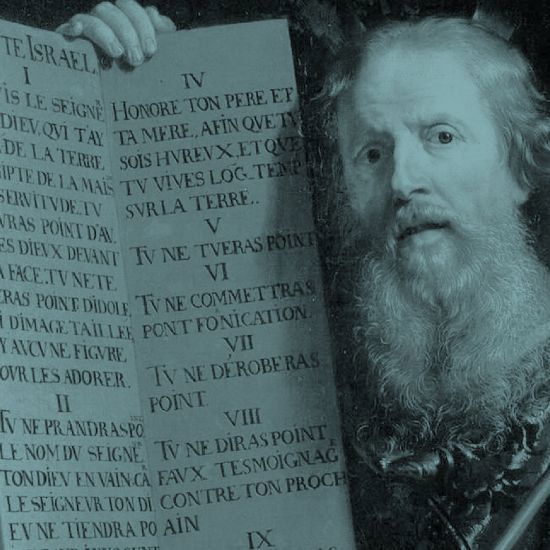 TE ISRAEL
I
VIS LE SEIGNR
DIEV, QVI T'AY
DE LA TERRE
IPTE DE LA MAIS
SERVITVDE, TV
VRAS POINT D'AV
ES DIEVX DEVANT
A FACE, TV NE TE
ERAS POINT DIDOLE
I DIMAGE TAILLEE
Y AVCVNE FIGVRE
OVR LES ADORER.
II
TV NE PRANDRAS PO
LE NOM DV SEIGNE
TON DIEV EN VAIN, CA
LE SEIGNEVR TON DI
EV NE TIENDRA PO
IV
HONORE TON PERE ET
TA MERE, AFIN QVE TV
SOIS HVREVX, ET QVE
TV VIVES LOG TEMP
SVR LA TERRE.
V
TV NE TVERAS POINT
VI
TV NE COMMETTRAS
PONT FONICATION.
VII
TV NE DEROBERAS
POINT
VIII
TV NE DIRAS POINT
FAVX TESMOIGNAG
CONTRE TON PROCH
AIN
IX